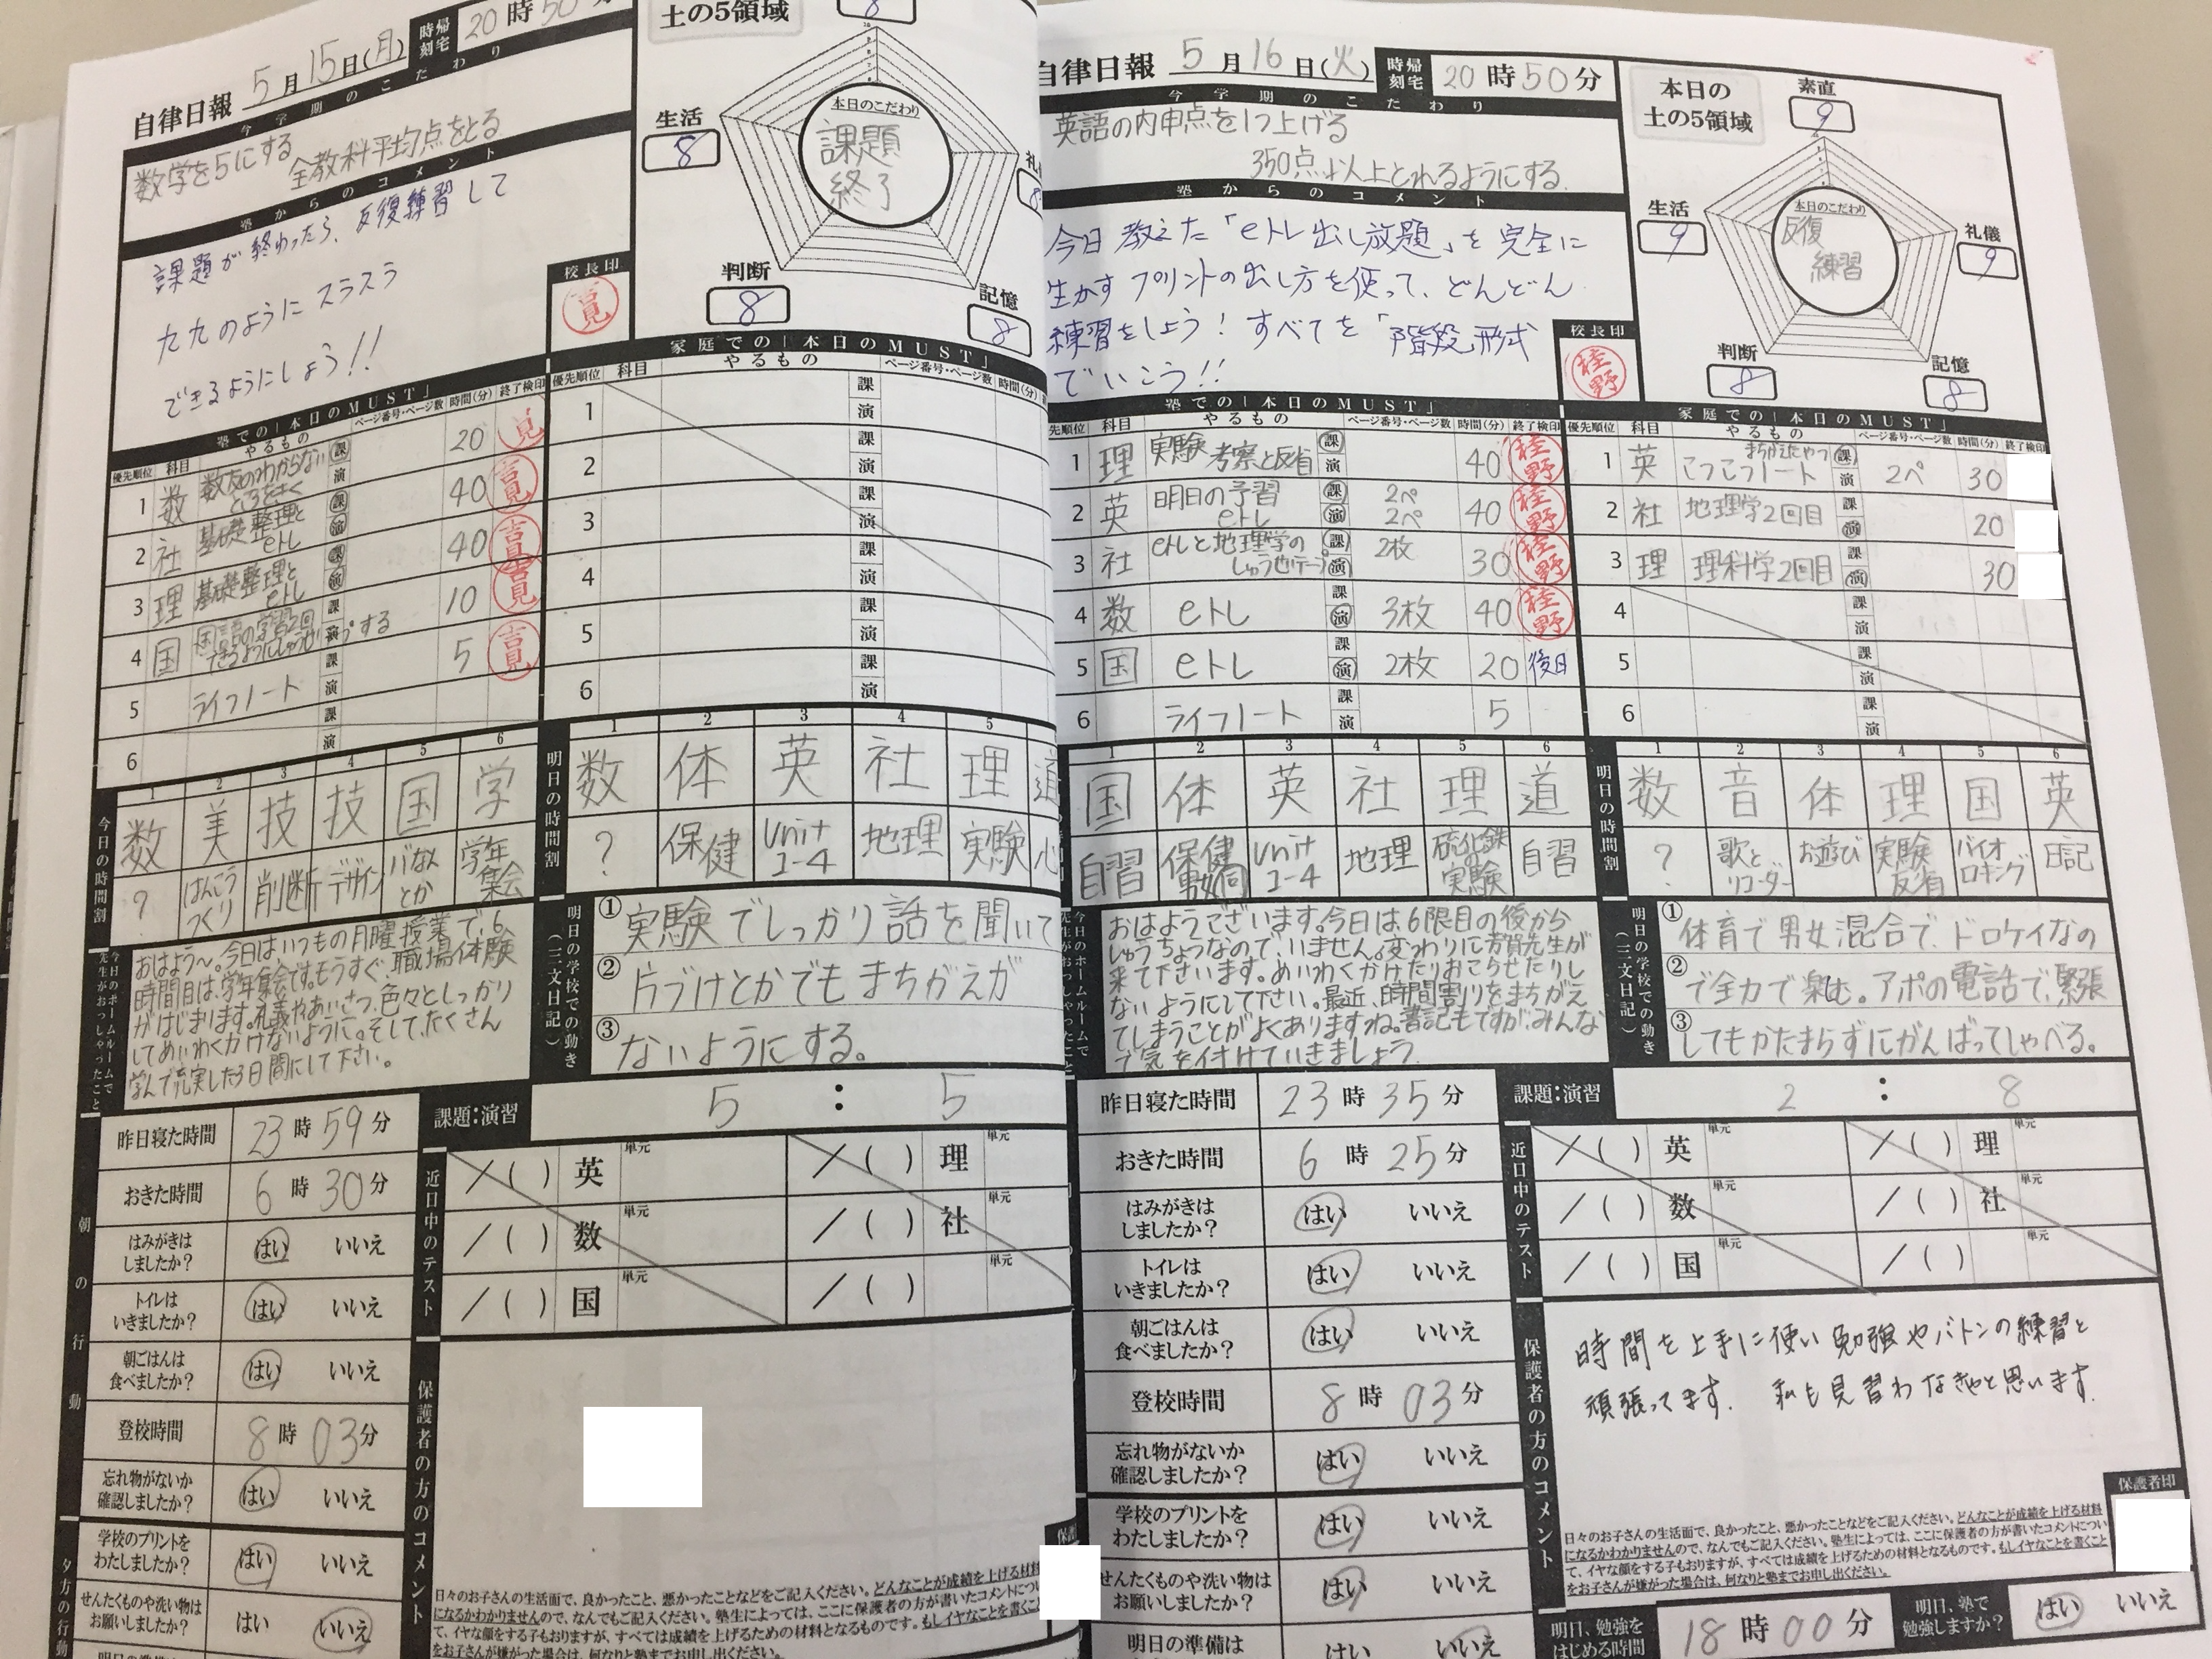 自律日報 5月15日(月)
時刻 帰宅 20時50分
今学期のこだわり
数学を5にする
全教科平均点をとる
塾からのコメント
課題が終わったら、反復練習して
九九のようにスラスラ
できるようにしよう!!
校長印
吉見
土の5領域
8
生活
8
判断
8
記憶
8
本日のこだわり
課題
終了
塾での「本日のMUST」
優先順位 科目 やるもの ページ番号・ページ数 時間(分) 終了検印
1 数 数友のわからない ところをきく 課 演 20
2 社 基礎整理と eトレ 課 演 40 吉見
3 理 基礎整理と eトレ 課 演 40 吉見
4 国 国語の学習2回 課 演 10 吉見
5 ライフノート 課 演 5 吉見
6 課 演
家庭での「本日のMUST」
優先順位 科目 やるもの ページ番号・ページ数 時間(分)
1 課 演
2 課 演
3 課 演
4 課 演
5 課 演
6 課 演
今日の時間割
1 2 3 4 5 6
数 美 技 技 国 学
? はんこうつくり 削断 デザイン バなんとか 学年集会
明日の時間割
1 2 3 4 5
数 体 英 社 理 道
? 保健 Unit 1-4 地理 実験 心
今日のホームルームで先生がおっしゃったこと
おはよう〜。今日はいつもの月曜授業で、6
時間目は、学年集会です。もうすぐ、職場体験
がはじまります。礼義やあいさつ、色々としっかり
してめいわくかけないように。そして、たくさん
学んで充実した3日間にして下さい。
明日の学校での動き(三文日記)
① 実験でしっかり話を聞いて
② 片づけとかでもまちがえが
③ ないようにする。
課題:演習 5 : 5
朝の行動
昨日寝た時間 23時59分
おきた時間 6時30分
はみがきはしましたか? はい いいえ
トイレはいきましたか? はい いいえ
朝ごはんは食べましたか? はい いいえ
登校時間 8時03分
忘れ物がないか確認しましたか? はい いいえ
夕方の行動
学校のプリントをわたしましたか? はい いいえ
せんたくものや洗い物はお願いしましたか? はい いいえ
近日中のテスト
/( ) 英 単元 /( ) 理 単元
/( ) 数 単元 /( ) 社 単元
/( ) 国 単元 /( ) 単元
保護者の方のコメント
日々のお子さんの生活面で、良かったこと、悪かったことなどをご記入ください。どんなことが成績を上げる材料
になるかわかりませんので、なんでもご記入ください。塾生によっては、ここに保護者の方が書いたコメントについ
て、イヤな顔をする子もおりますが、すべては成績を上げるための材料となるものです。もしイヤなことを書くこと
をお子さんが嫌がった場合は、何なりと塾までお申し出ください。
自律日報 5月16日(火)
時刻 帰宅 20時50分
今学期のこだわり
英語の内申点を1つ上げる
350点以上とれるようにする。
塾からのコメント
今日教えた「eトレ出し放題」を完全に
生かすプリントの出し方を使って、どんどん
練習をしよう!すべてを「階段形式
でいこう!!
校長印
桂野
本日の
土の5領域
素直
9
生活
9
礼儀
9
判断
8
記憶
8
本日のこだわり
反復
練習
塾での「本日のMUST」
先順位 科目 やるもの ページ番号・ページ数 時間(分) 終了検印
1 理 実験 考察と反省 課 演 40 桂野
2 英 明日の予習 eトレ 課 演 2ペ 2ペ 40 桂野
3 社 eトレと地理学の 課 演 2枚 30 桂野
4 数 eトレ 課 演 3枚 40 桂野
5 国 eトレ 課 演 2枚 20 後日
6 ライフノート 課 演 5
家庭での「本日のMUST」
優先順位 科目 やるもの ページ番号・ページ数 時間(分) 終了検印
1 英 まちがえたやつ こつこつノート 課 演 2ペ 30
2 社 地理学2回目 課 演 20
3 理 理科学2回目 課 演 30
4 課 演
5 課 演
6 課 演
1 2 3 4 5 6
国 体 英 社 理 道
自習 保健 Unit 1-4 地理 硫化鉄の実験 自習
明日の時間割
1 2 3 4 5 6
数 音 体 理 国 英
? 歌とリコーダー お遊び 実験反省 バイオロギング 日記
今日のホームルームで先生がおっしゃったこと
おはようございます。今日は6限目の後から
しゅうちょうなので、いません。変わりに芳賀先生が
来て下さいます。めいわくかけたりおこらせたりし
ないようにして下さい。最近、時間割りをまちがえ
てしまうことがよくありますね。書記もですが、みんな
で気を付けていきましょう。
明日の学校での動き(三文日記)
① 体育で男女混合で、ドロケイなの
② で全力で楽む。アポの電話で、緊張
③ してもかたまらずにがんばってしゃべる。
課題:演習 2 : 8
昨日寝た時間 23時35分
おきた時間 6時25分
はみがきはしましたか? はい いいえ
トイレはいきましたか? はい いいえ
朝ごはんは食べましたか? はい いいえ
登校時間 8時03分
忘れ物がないか確認しましたか? はい いいえ
学校のプリントをわたしましたか? はい いいえ
せんたくものや洗い物はお願いしましたか? はい いいえ
明日の準備は はい いいえ
近日中のテスト
/( ) 英 単元 /( ) 理 単元
/( ) 数 単元 /( ) 社 単元
/( ) 国 単元 /( ) 単元
保護者の方のコメント
時間を上手に使い勉強やバトンの練習と
頑張ってます。私も見習わなきゃと思います。
保護者印
日々のお子さんの生活面で、良かったこと、悪かったことなどをご記入ください。どんなことが成績を上げる材料
になるかわかりませんので、なんでもご記入ください。塾生によっては、ここに保護者の方が書いたコメントについ
て、イヤな顔をする子もおりますが、すべては成績を上げるための材料となるものです。もしイヤなことを書くこと
をお子さんが嫌がった場合は、何なりと塾までお申し出ください。
明日、勉強をはじめる時間 18時00分
明日、塾で勉強しますか? はい いいえ